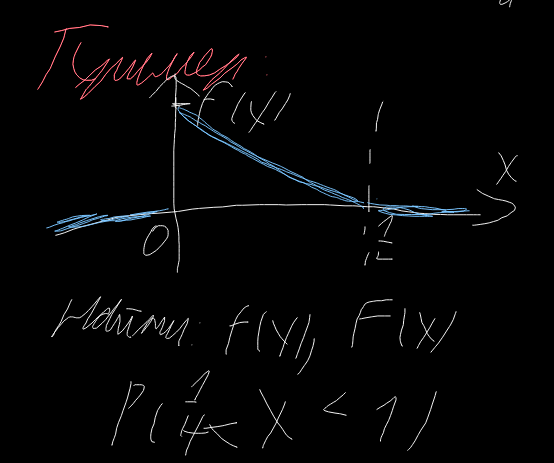 Пример:
f(x)
x
0
1/2
Найти: f(x), F(x)
P(1/4 < X < 1)